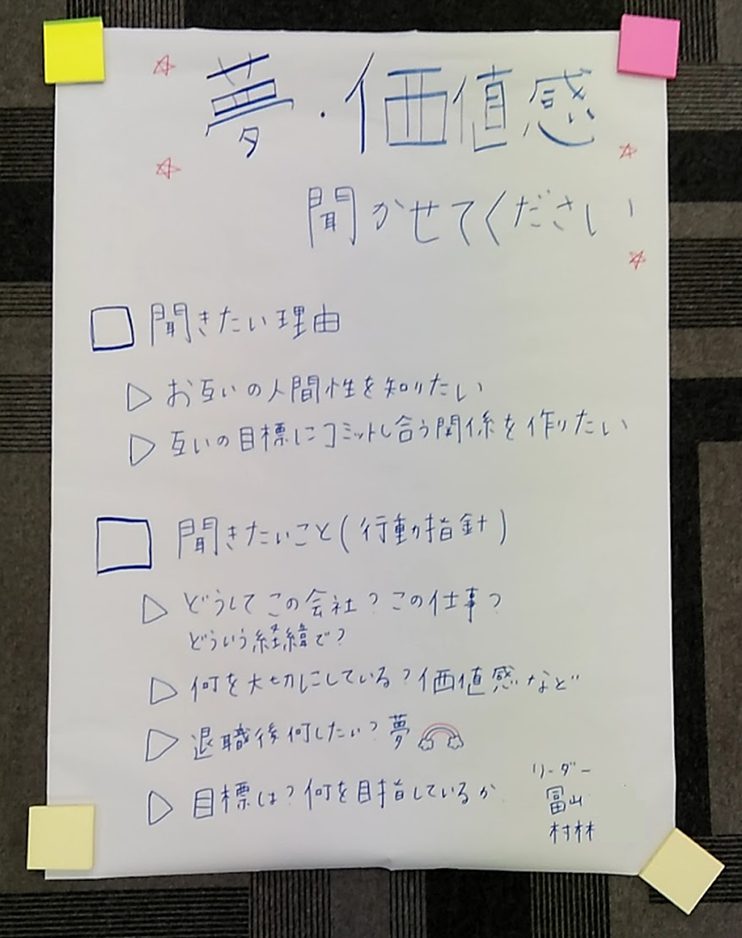 夢・価値感
聞かせてください
□ 聞きたい理由
▷ お互いの人間性を知りたい
▷ 互いの目標にコミットし合う関係を作りたい
□ 聞きたいこと(行動指針)
▷ どうしてこの会社?この仕事?
どういう経緯で?
▷ 何を大切にしている?価値感など
▷ 退職後何したい?夢
▷ 目標は?何を目指しているか
リーダー
冨山
村林